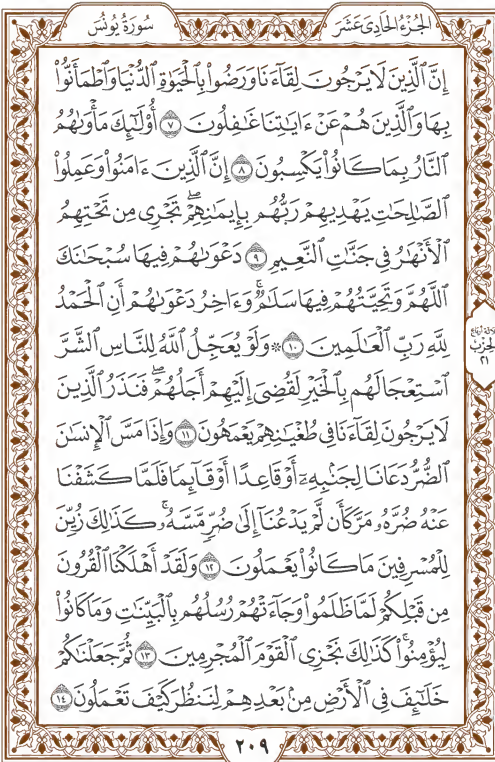 الجُزْءُ الحَادِي عَشَر
سُورَةُ يُونُسَ
إِنَّ ٱلَّذِينَ لَا يَرْجُونَ لِقَآءَنَا وَرَضُوا۟ بِٱلْحَيَوٰةِ ٱلدُّنْيَا وَٱطْمَأَنُّوا۟
بِهَا وَٱلَّذِينَ هُمْ عَنْ ءَايَٰتِنَا غَٰفِلُونَ ٧ أُو۟لَٰٓئِكَ مَأْوَىٰهُمُ
ٱلنَّارُ بِمَا كَانُوا۟ يَكْسِبُونَ ٨ إِنَّ ٱلَّذِينَ ءَامَنُوا۟ وَعَمِلُوا۟
ٱلصَّٰلِحَٰتِ يَهْدِيهِمْ رَبُّهُم بِإِيمَٰنِهِمْ ۖ تَجْرِى مِن تَحْتِهِمُ
ٱلْأَنْهَٰرُ فِى جَنَّٰتِ ٱلنَّعِيمِ ٩ دَعْوَىٰهُمْ فِيهَا سُبْحَٰنَكَ
ٱللَّهُمَّ وَتَحِيَّتُهُمْ فِيهَا سَلَٰمٌ ۚ وَءَاخِرُ دَعْوَىٰهُمْ أَنِ ٱلْحَمْدُ
لِلَّهِ رَبِّ ٱلْعَٰلَمِينَ ١٠ ۞ وَلَوْ يُعَجِّلُ ٱللَّهُ لِلنَّاسِ ٱلشَّرَّ
ٱسْتِعْجَالَهُم بِٱلْخَيْرِ لَقُضِىَ إِلَيْهِمْ أَجَلُهُمْ ۖ فَنَذَرُ ٱلَّذِينَ
لَا يَرْجُونَ لِقَآءَنَا فِى طُغْيَٰنِهِمْ يَعْمَهُونَ ١١ وَإِذَا مَسَّ ٱلْإِنسَٰنَ
ٱلضُّرُّ دَعَانَا لِجَنۢبِهِۦٓ أَوْ قَاعِدًا أَوْ قَآئِمًا فَلَمَّا كَشَفْنَا
عَنْهُ ضُرَّهُۥ مَرَّ كَأَن لَّمْ يَدْعُنَآ إِلَىٰ ضُرٍّ مَّسَّهُۥ ۚ كَذَٰلِكَ زُيِّنَ
لِلْمُسْرِفِينَ مَا كَانُوا۟ يَعْمَلُونَ ١٢ وَلَقَدْ أَهْلَكْنَا ٱلْقُرُونَ
مِن قَبْلِكُمْ لَمَّا ظَلَمُوا۟ وَجَآءَتْهُمْ رُسُلُهُم بِٱلْبَيِّنَٰتِ وَمَا كَانُوا۟
لِيُؤْمِنُوا۟ ۚ كَذَٰلِكَ نَجْزِى ٱلْقَوْمَ ٱلْمُجْرِمِينَ ١٣ ثُمَّ جَعَلْنَٰكُمْ
خَلَٰٓئِفَ فِى ٱلْأَرْضِ مِنۢ بَعْدِهِمْ لِنَنظُرَ كَيْفَ تَعْمَلُونَ ١٤
الحِزْبُ
٢١
٢٠٩